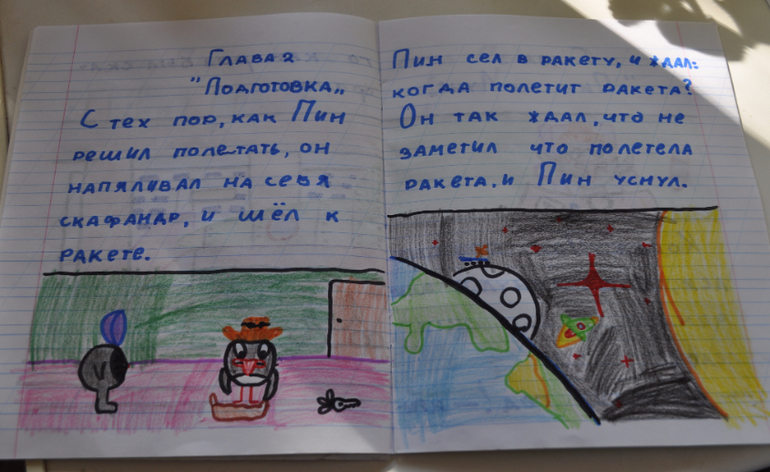 Глава 2
"Подготовка„
С тех пор, как Пин
решил полетать, он
напяливал на себя
скафандр, и шёл к
ракете.
Пин сел в ракету, и ждал:
когда полетит ракета?
Он так ждал, что не
заметил что полетела
ракета. и Пин уснул.